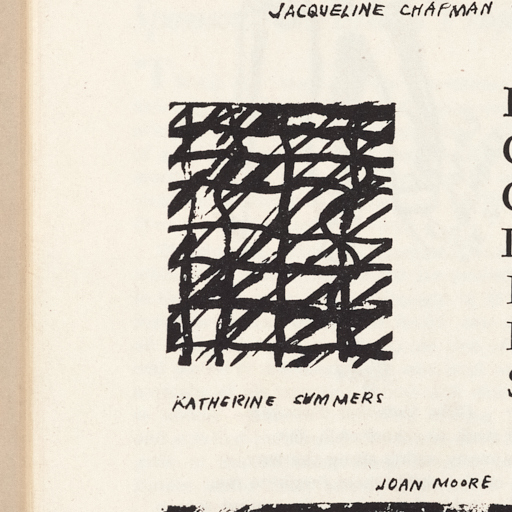 JACQUELINE CHAPMAN
KATHERINE SUMMERS
JOAN MOORE